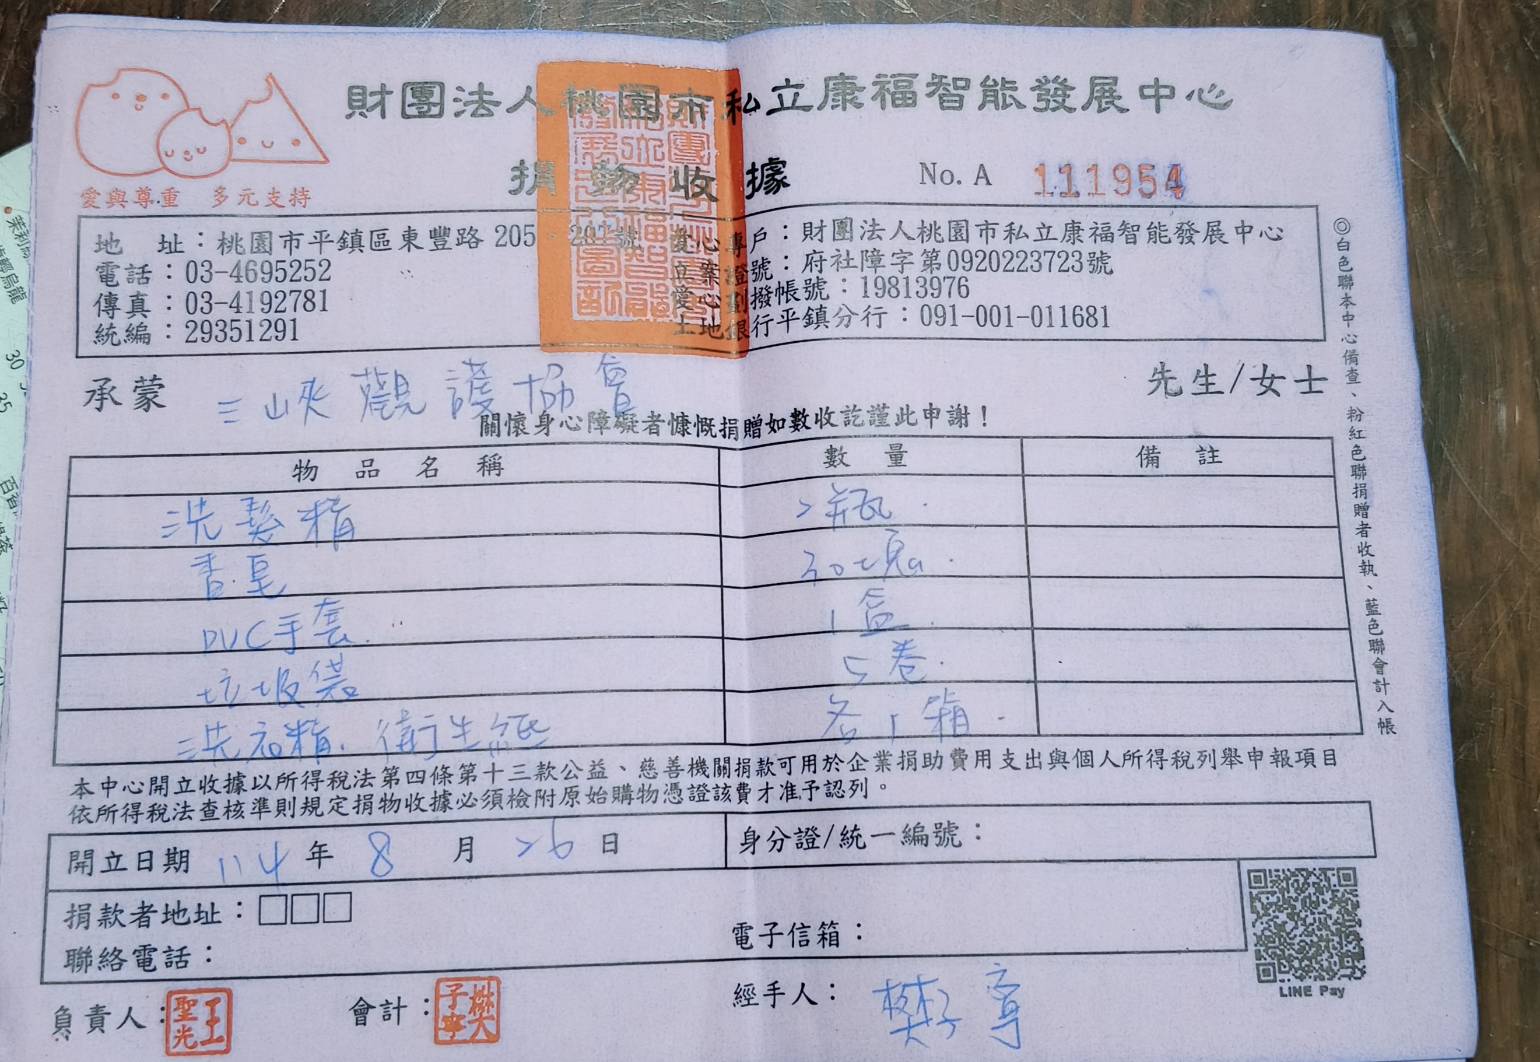 財團法人桃園市私立康福智能發展中心
捐物收據
No. A 111954
愛與尊重 多元支持
地 址：桃園市平鎮區東豐路 205、207號
電話：03-4695252
傳真：03-4192781
統編：29351291
愛心專戶：財團法人桃園市私立康福智能發展中心
立案證號：府社障字第0920223723號
愛心劃撥帳號：19813976
土地銀行平鎮分行：091-001-011681
承蒙 三峽觀護協會 先生/女士
關懷身心障礙者慷慨捐贈如數收訖謹此申謝！
物品名稱 數量 備註
洗髮精 2瓶.
香皂 30塊.
PVC手套. 1盒
垃圾袋 5卷.
洗衣精. 衛生紙 各1箱.
本中心開立收據以所得稅法第四條第十三款公益、慈善機關捐款可用於企業捐助費用支出與個人所得稅列舉申報項目
依所得稅法查核準則規定捐物收據必須檢附原始購物憑證該費才准予認列。
開立日期 114 年 8 月 26 日 身分證/統一編號：
捐款者地址：□□□
聯絡電話： 電子信箱：
LINE Pay
負責人：王聖光 會計：樊子寧 經手人： 樊子寧
◎白色聯本中心備查、粉紅色聯捐贈者收執、藍色聯會計入帳